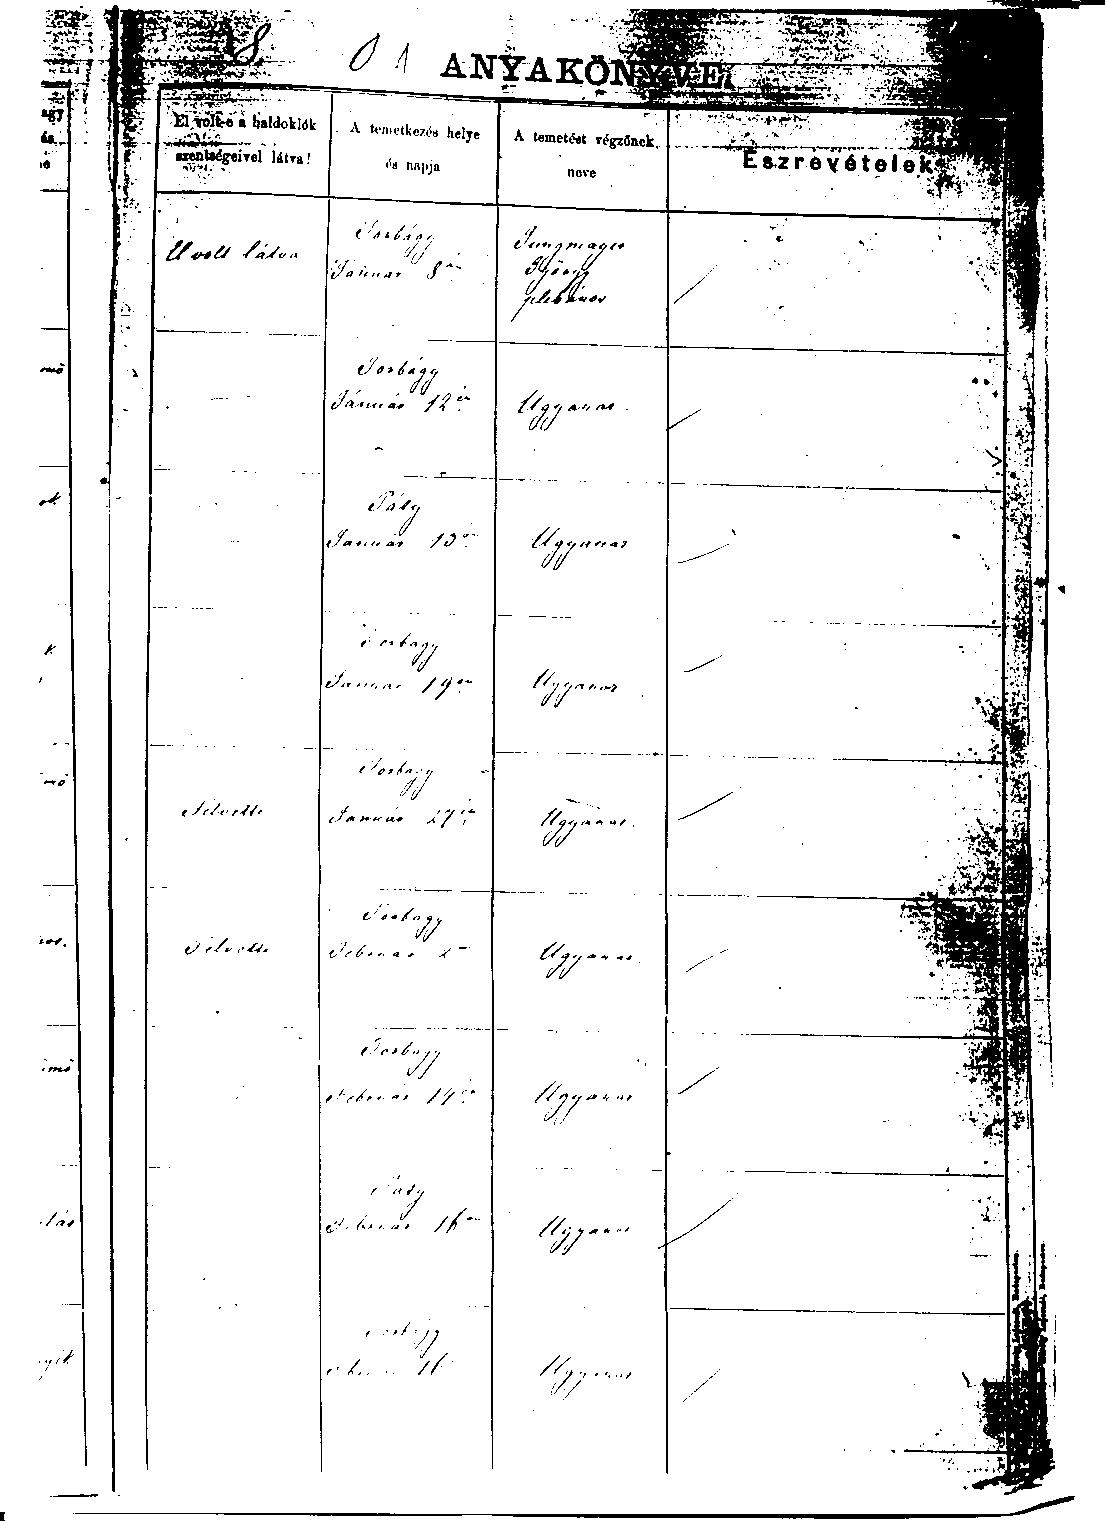 ANYAKÖNYVE.
El volt-e a haldoklók
szentségeivel látva!
A temetkezés helye
és napja
A temetést végzőnek
neve
Észrevételek
El volt látva
Torbágy
Január 8án
Jungmayer
György
plebános
Torbágy
Január 12én
Ugyanaz
Páty
Január 13án
Ugyanaz
Torbágy
Január 19én
Ugyanaz
Felvette
Torbágy
Január 27én
Ugyanaz
Felvette
Torbágy
Február 2án
Ugyanaz
Torbágy
Február 14én
Ugyanaz
Páty
Február 16án
Ugyanaz
Torbágy
Február 16
Ugyanaz